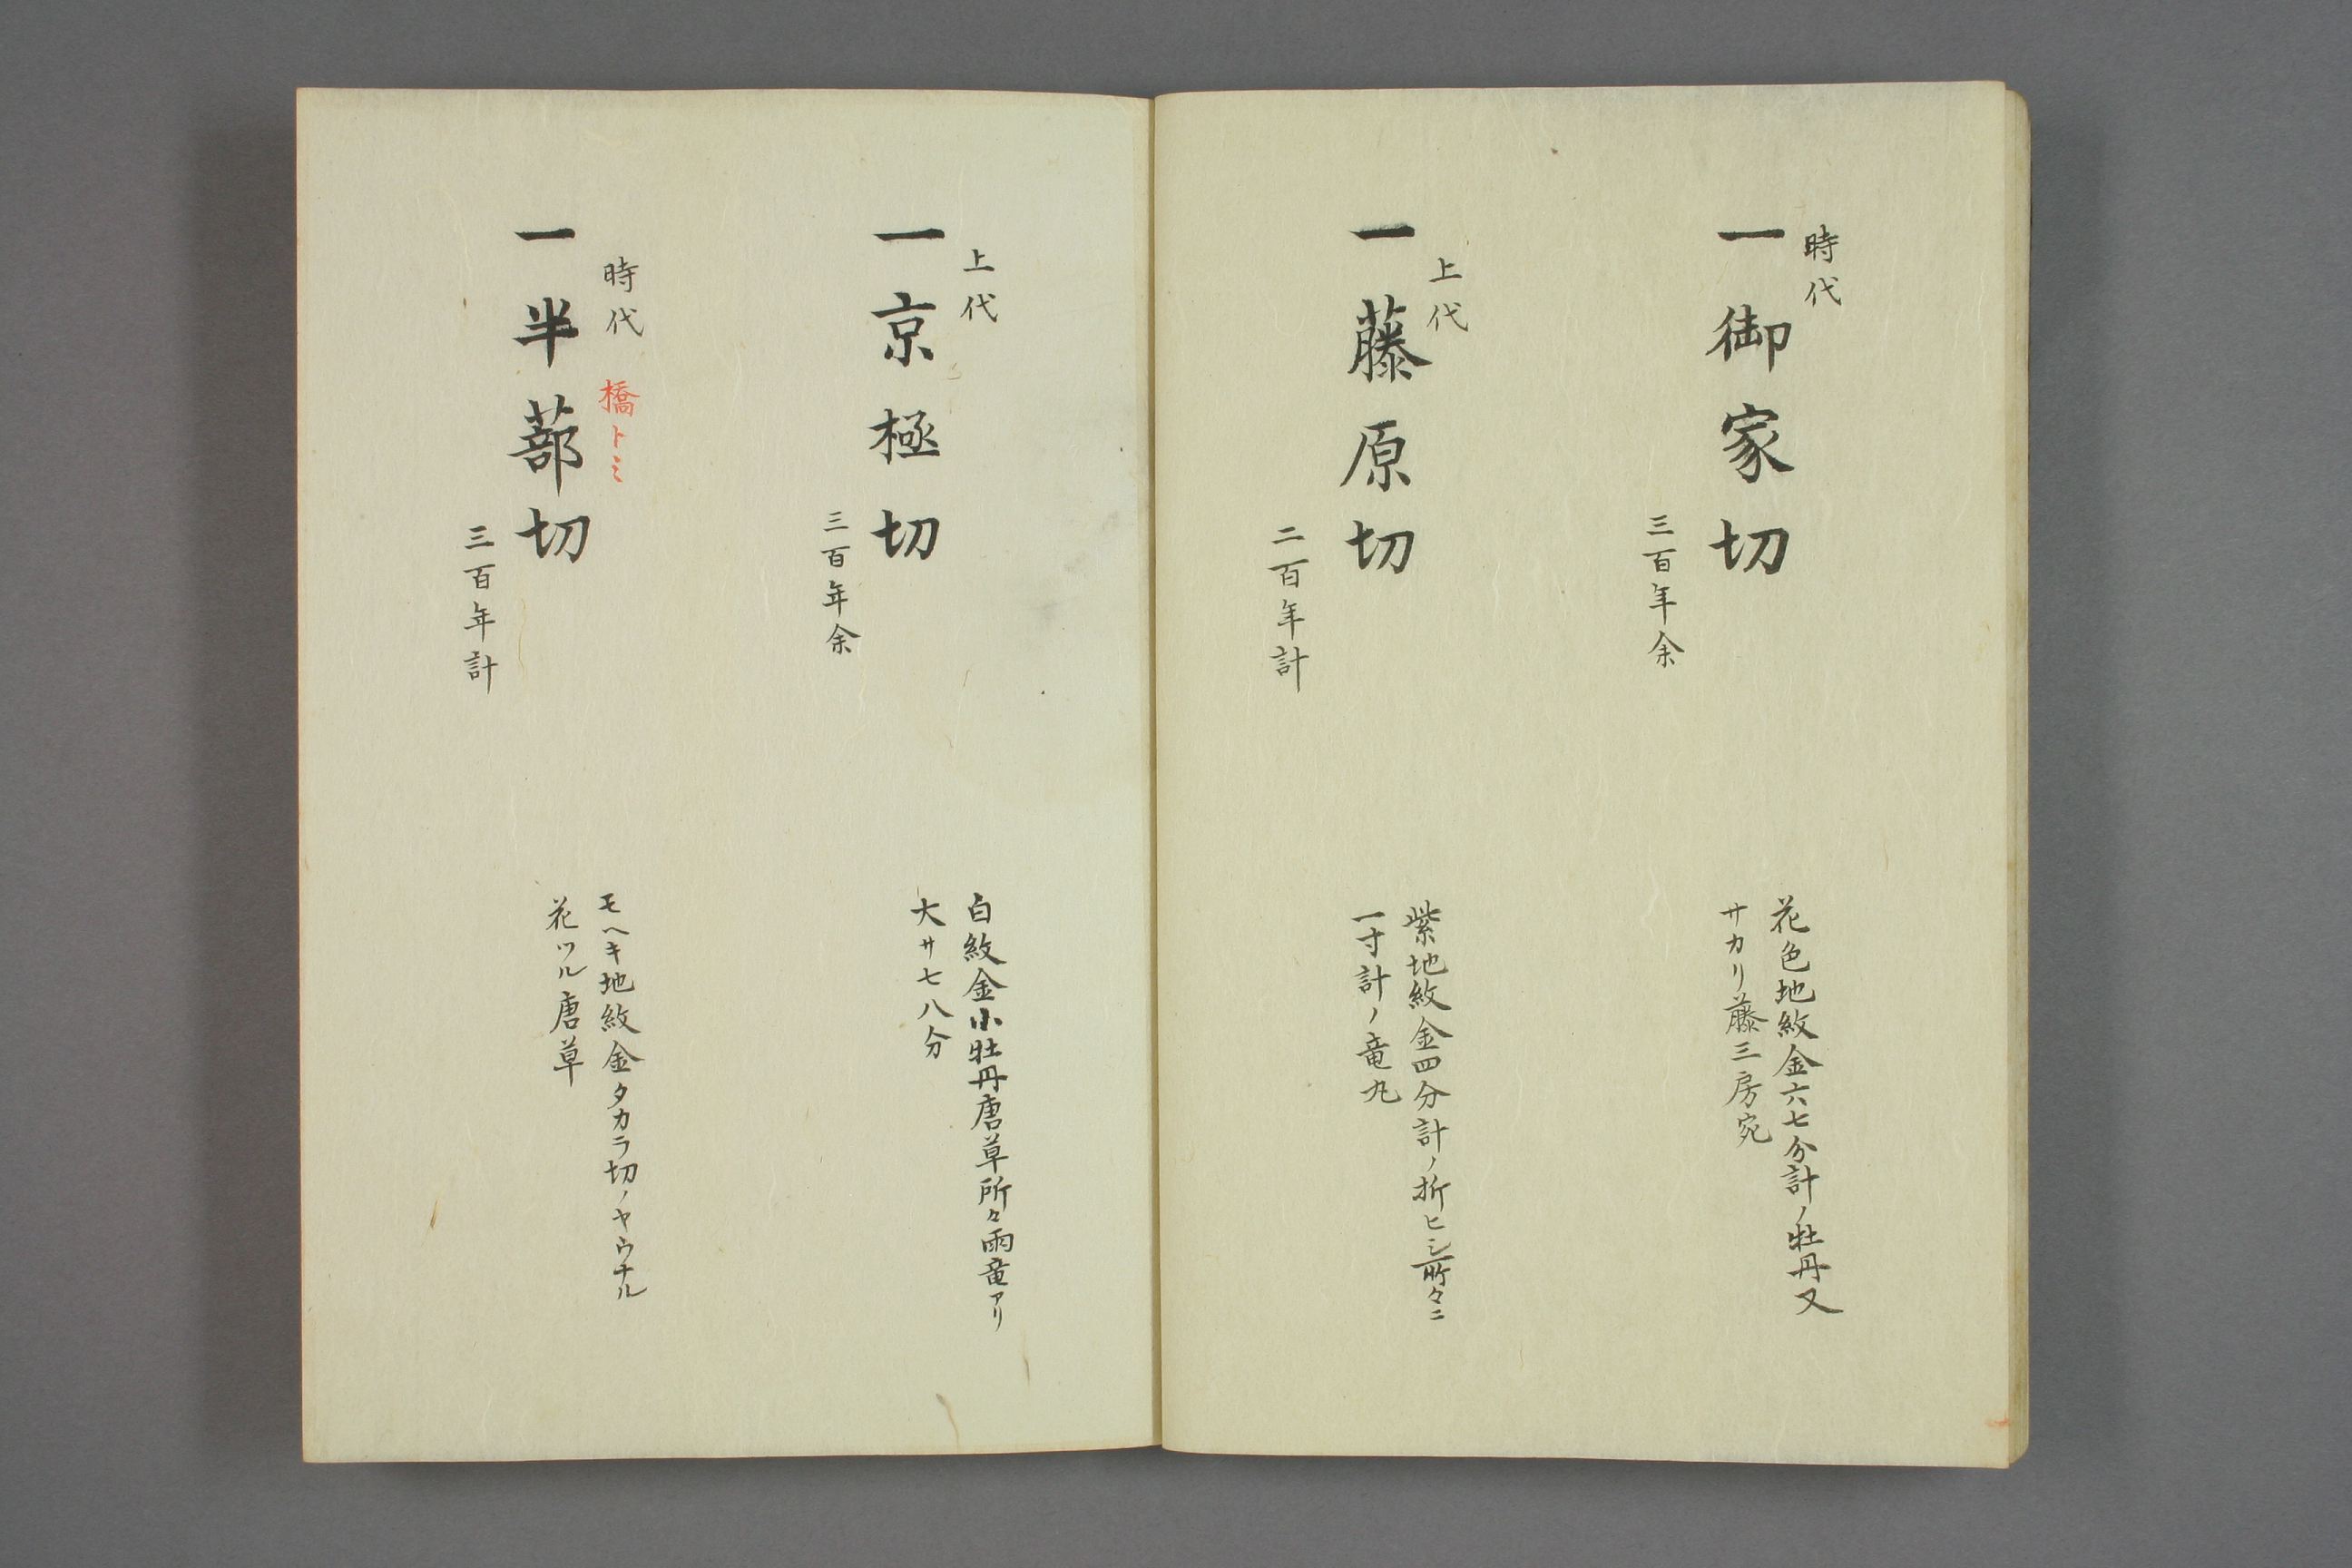 時代
一御家切
三百年余
花色地紋金六七分計ノ牡丹又
サカリ藤三房宛
上代
一藤原切
二百年計
紫地紋金四分計ノ折ヒシ所々ニ
一寸計ノ竜丸
上代
一京極切
三百年余
白紋金小牡丹唐草所々雨竜アリ
大サ七八分
時代 橋トミ
一半蔀切
三百年計
モヘキ地紋金タカラ切ノヤウナル
花ツル唐草